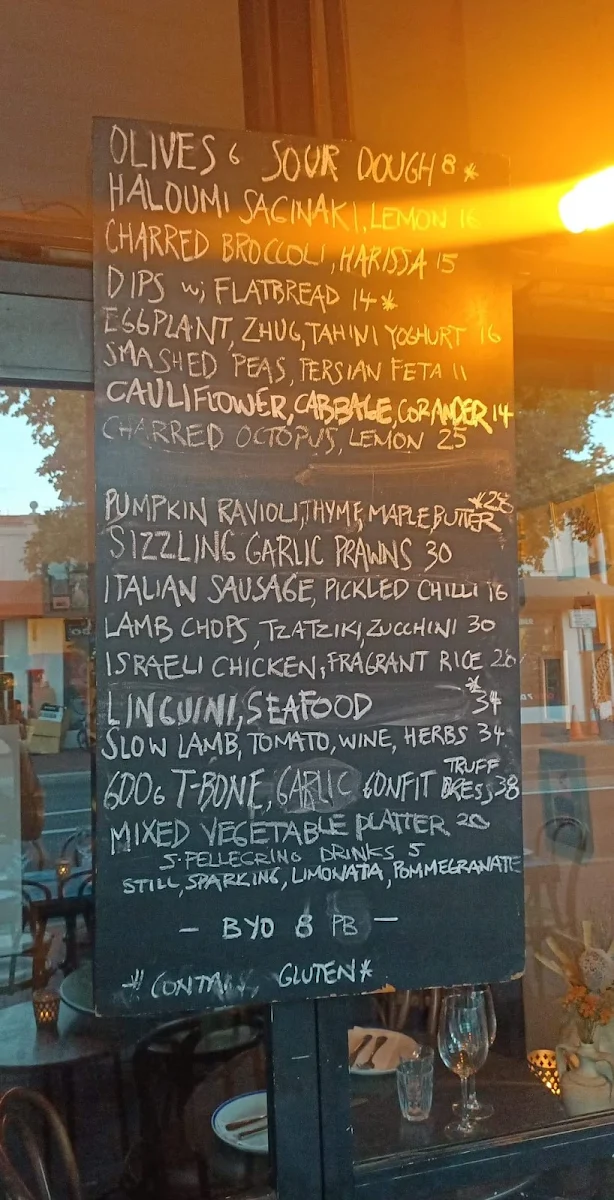 OLIVES 6 SOUR DOUGH 8 *
HALOUMI SAGINAKI, LEMON 16
CHARRED BROCCOLI, HARISSA 15
DIPS w; FLATBREAD 14 *
EGGPLANT, ZHUG, TAHINI YOGHURT 16
SMASHED PEAS, PERSIAN FETA 11
CAULIFLOWER, CABBAGE, CORANDER 14
CHARRED OCTOPUS, LEMON 25
PUMPKIN RAVIOLI, THYME, MAPLE, BUTTER *28
SIZZLING GARLIC PRAWNS 30
ITALIAN SAUSAGE, PICKLED CHILLI 16
LAMB CHOPS, TZATZIKI, ZUCCHINI 30
ISRAELI CHICKEN, FRAGRANT RICE 28
LINGUINI, SEAFOOD * 34
SLOW LAMB, TOMATO, WINE, HERBS 34
600G T-BONE, GARLIC CONFIT TRUFF DRESS, 38
MIXED VEGETABLE PLATTER 20
S. PELLEGRINO DRINKS 5
STILL, SPARKING, LIMONATA, POMMEGRANATE
- BYO 8 PB -
* CONTAIN GLUTEN *